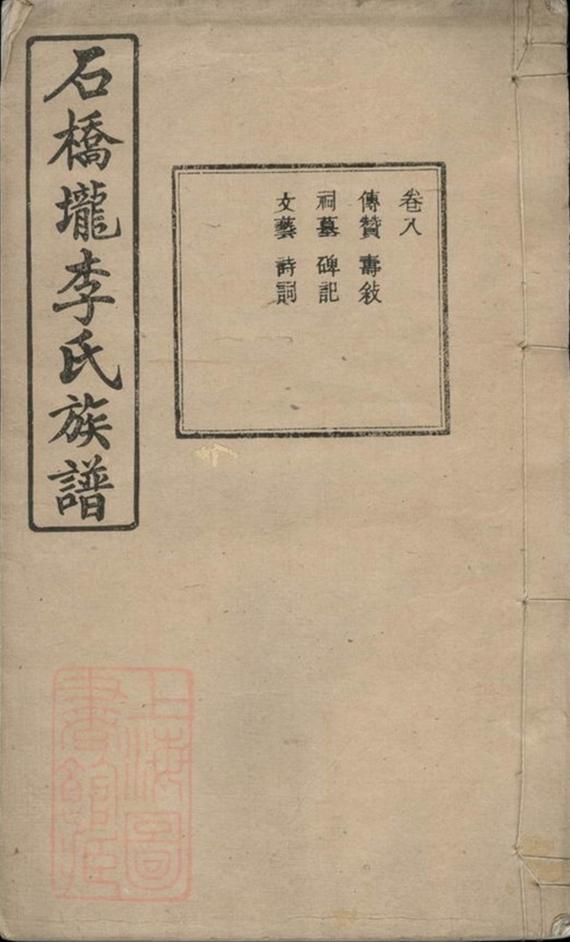 石橋壠李氏族譜
卷八
傳贊 壽敍
祠墓 碑記
文藝 詩詞
上海圖
書館藏